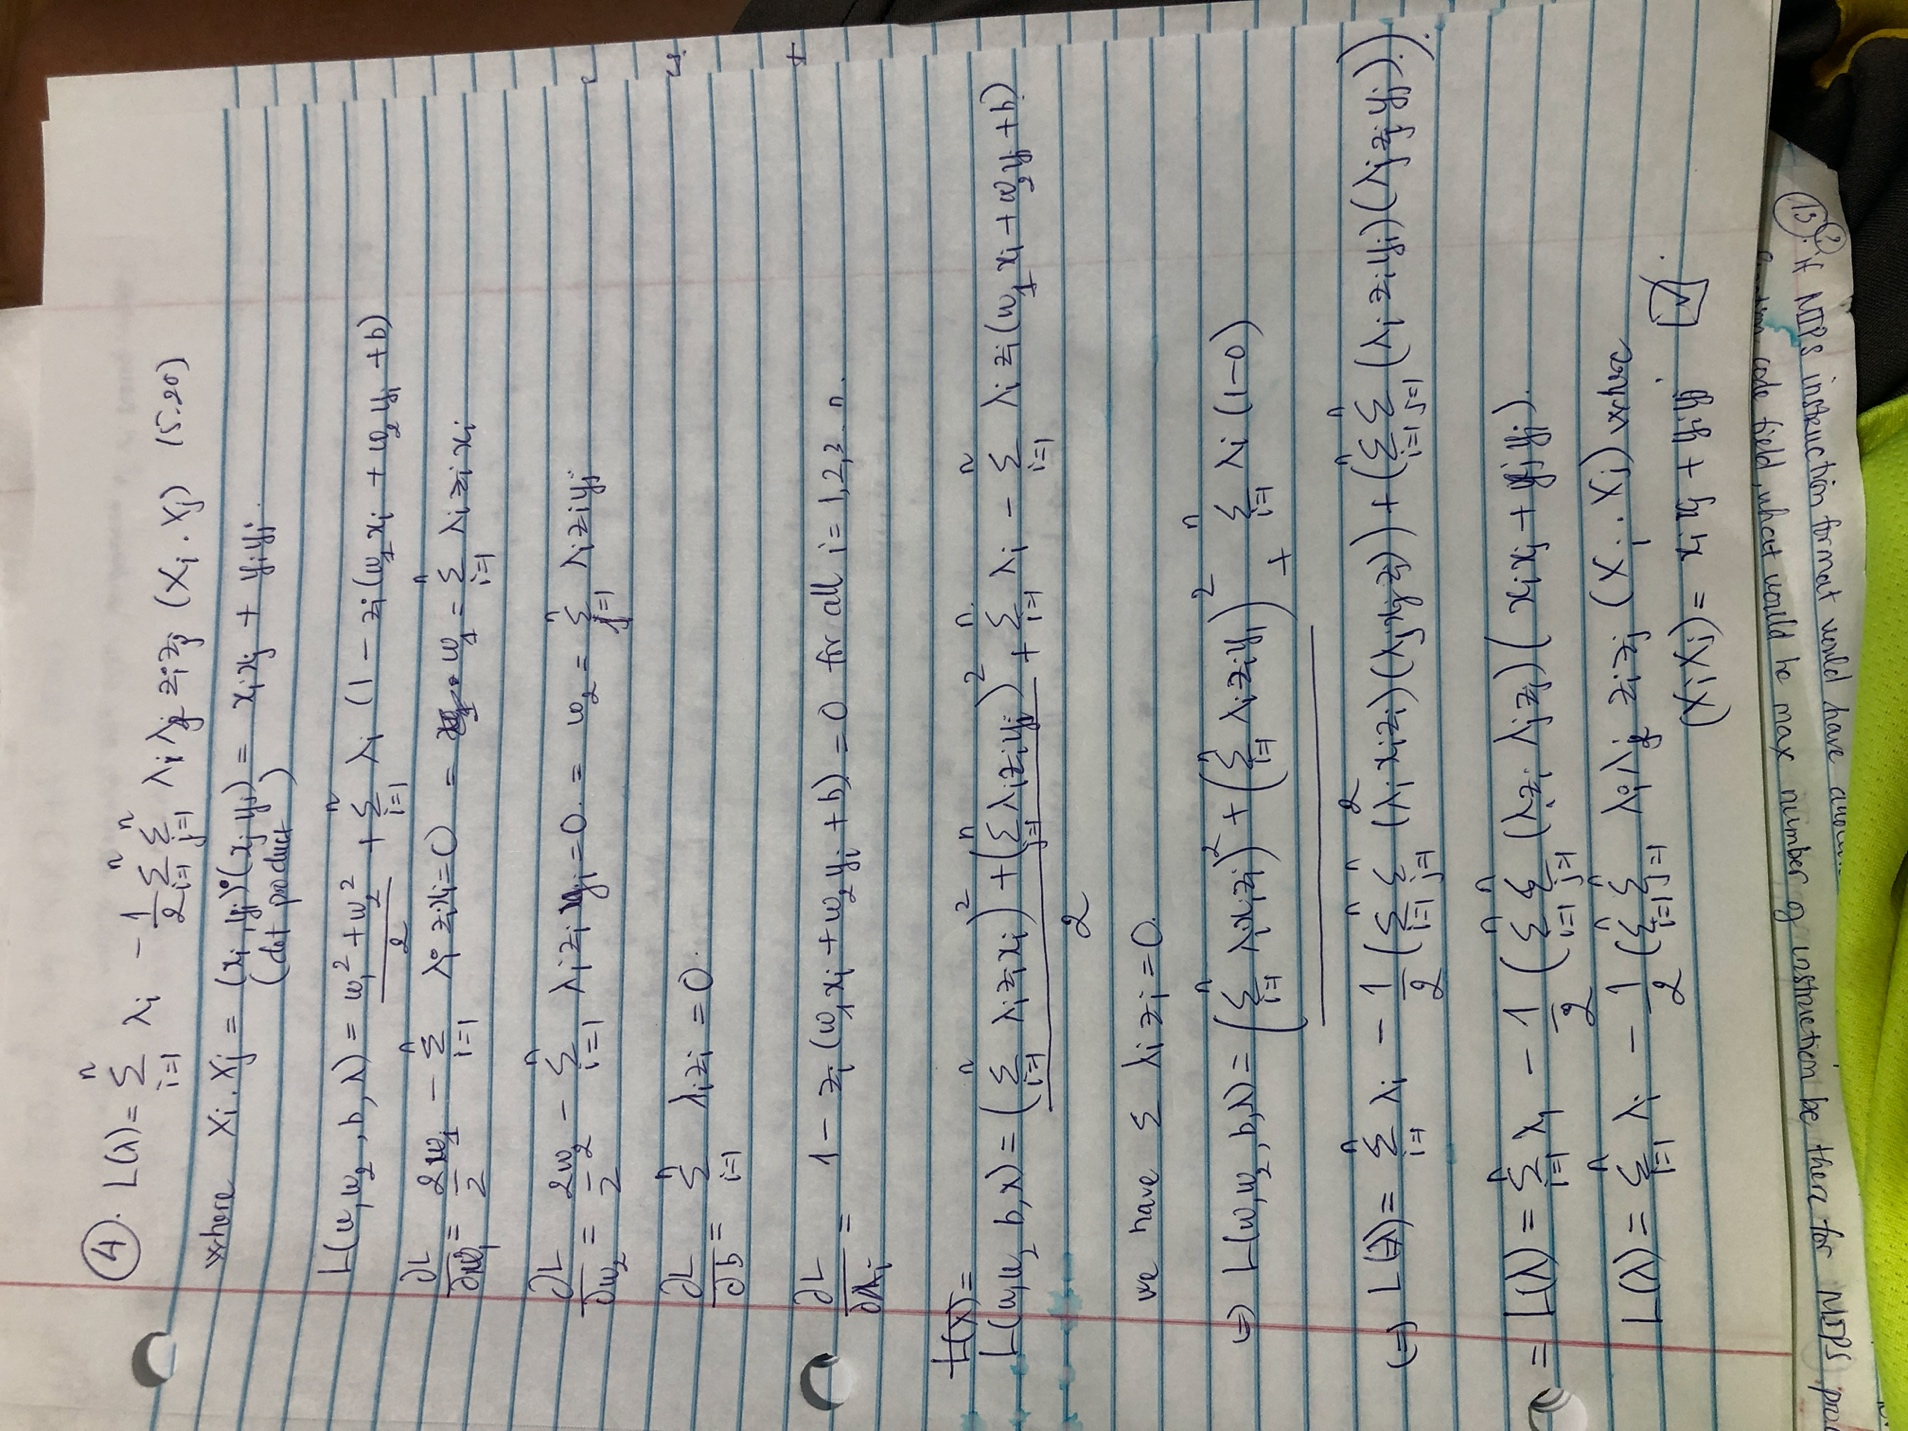 ④. L(λ) = n∑i=1 λi - 1/2 ∑i=1 n∑j=1 λi λj zi zj (Xi . Xj) (5.20)
where Xi . Xj = (xi, yi)·(xj yj) = xi xj + yi yj.
(dot product)
L(w, w2, b, λ) = w1² + w2² / 2 + n∑i=1 λi (1 - zi(w1 xi + w2 yi + b)
∂L/∂w1 = 2w1/2 - n∑i=1 λi zi xi = 0 = w1 = n∑i=1 λi zi xi
∂L/∂w2 = 2w2/2 - n∑i=1 λi zi yi = 0. = w2 = n∑i=1 λi zi yj
∂L/∂b = n∑i=1 λi zi = 0.
∂L/∂λi = 1 - zi (w1 xi + w2 yi + b) = 0 for all i = 1,2,3 n.
L(λ) =
L(w, w2 b, λ) = (n∑i=1 λi zi xi)² + (n∑j=1 λi zi yj)² / 2 + n∑i=1 λi - n∑i=1 λi zi (w1 xi + w2 yj + b).
we have ∑ λi zi = 0.
⇒ L(w, w2, b, λ) = (n∑i=1 λi xi zi)² + (n∑i=1 λi zi yi)² / 2 + n∑i=1 λi (1-0)
(=) L(λ) = n∑i=1 λi - 1/2 (n∑i=1 n∑j=1 (λi xi zi)(λj xj zj)) + (n∑i=1 ∑j=1 (λi zi yi)(λj zj yj)).
= L(λ) = n∑i=1 λi - 1/2 (n∑i=1 n∑j=1 (λi zi λj zj) (xi xj + yj yi).
L(λ) = n∑i=1 λi - 1/2 (n∑i=1 n∑j=1 λi λj zi zj (Xi . Xj) where
(Xi Xj) = xi xj + yi yj.
13. if MIPS instruction format would have
code field, what would be max number of instruction be there for MIPS